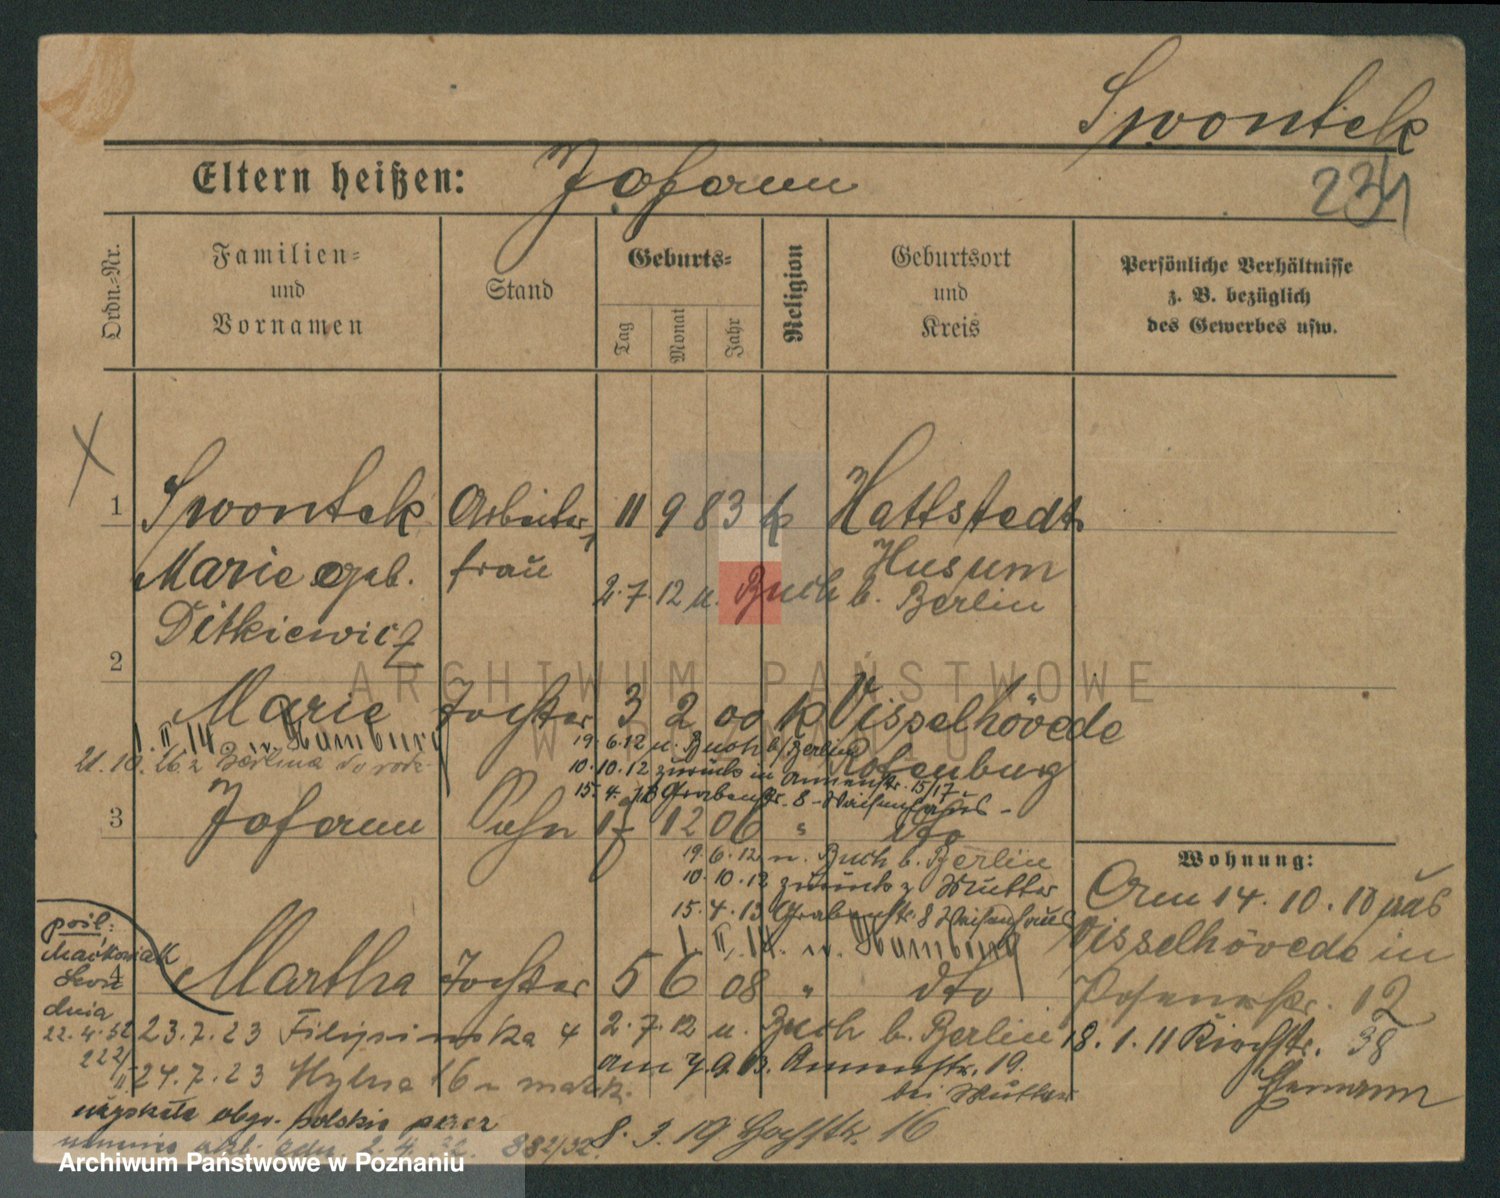 Swontek
Eltern heißen: Johann
234
Ordn.-Nr.
Familien-
und
Vornamen
Stand
Geburts-
Tag
Monat
Jahr
Religion
Geburtsort
und
Kreis
Persönliche Verhältnisse
z. B. bezüglich
des Gewerbes usw.
1 Swontek Arbeiter 11 9 83 k Hattstedt
Marie geb. frau Husum
2.7.12 n. Buch b. Berlin
Ditkiewicz
2
Marie Tochter 3 2 00 k Visselhövede
1. II. 14 n. Hamburg
19.6.12 n. Buch b/Berlin
Rotenburg
21.10.26 z Berlina
10.10.12 zurück in Annenstr. 15/17.
15.4.13 Grabenstr. 8 - Waisenhaus -
3 Johann Sohn 17 12 06 " dto
19.6.12 n. Buch b. Berlin
10.10.12 zurück z Mutter
15.4.13 Grabenstr. 8 Waisenhaus
1. II. 14. n. Hamburg
Wohnung:
Am 14.10.10 aus
Visselhövede in
Posenerstr. 12
18.1.11 Kirchstr. 38
4 Martha Tochter 5 6 08 " dto
pośl:
Maćkowiak
Leon
dnia
22.4.32
222/II
23.7.23 Filipinska 4
2.7.12 n. Buch b. Berlin
am 7.9.13. Annenstr. 19.
24.7.23 Hylna 16
bei Mutter
uzyskała obyw. polskie przez
8.3.19 Hochstr. 16
882/32.
ARCHIWUM PAŃSTWOWE
W POZNANIU
Archiwum Państwowe w Poznaniu